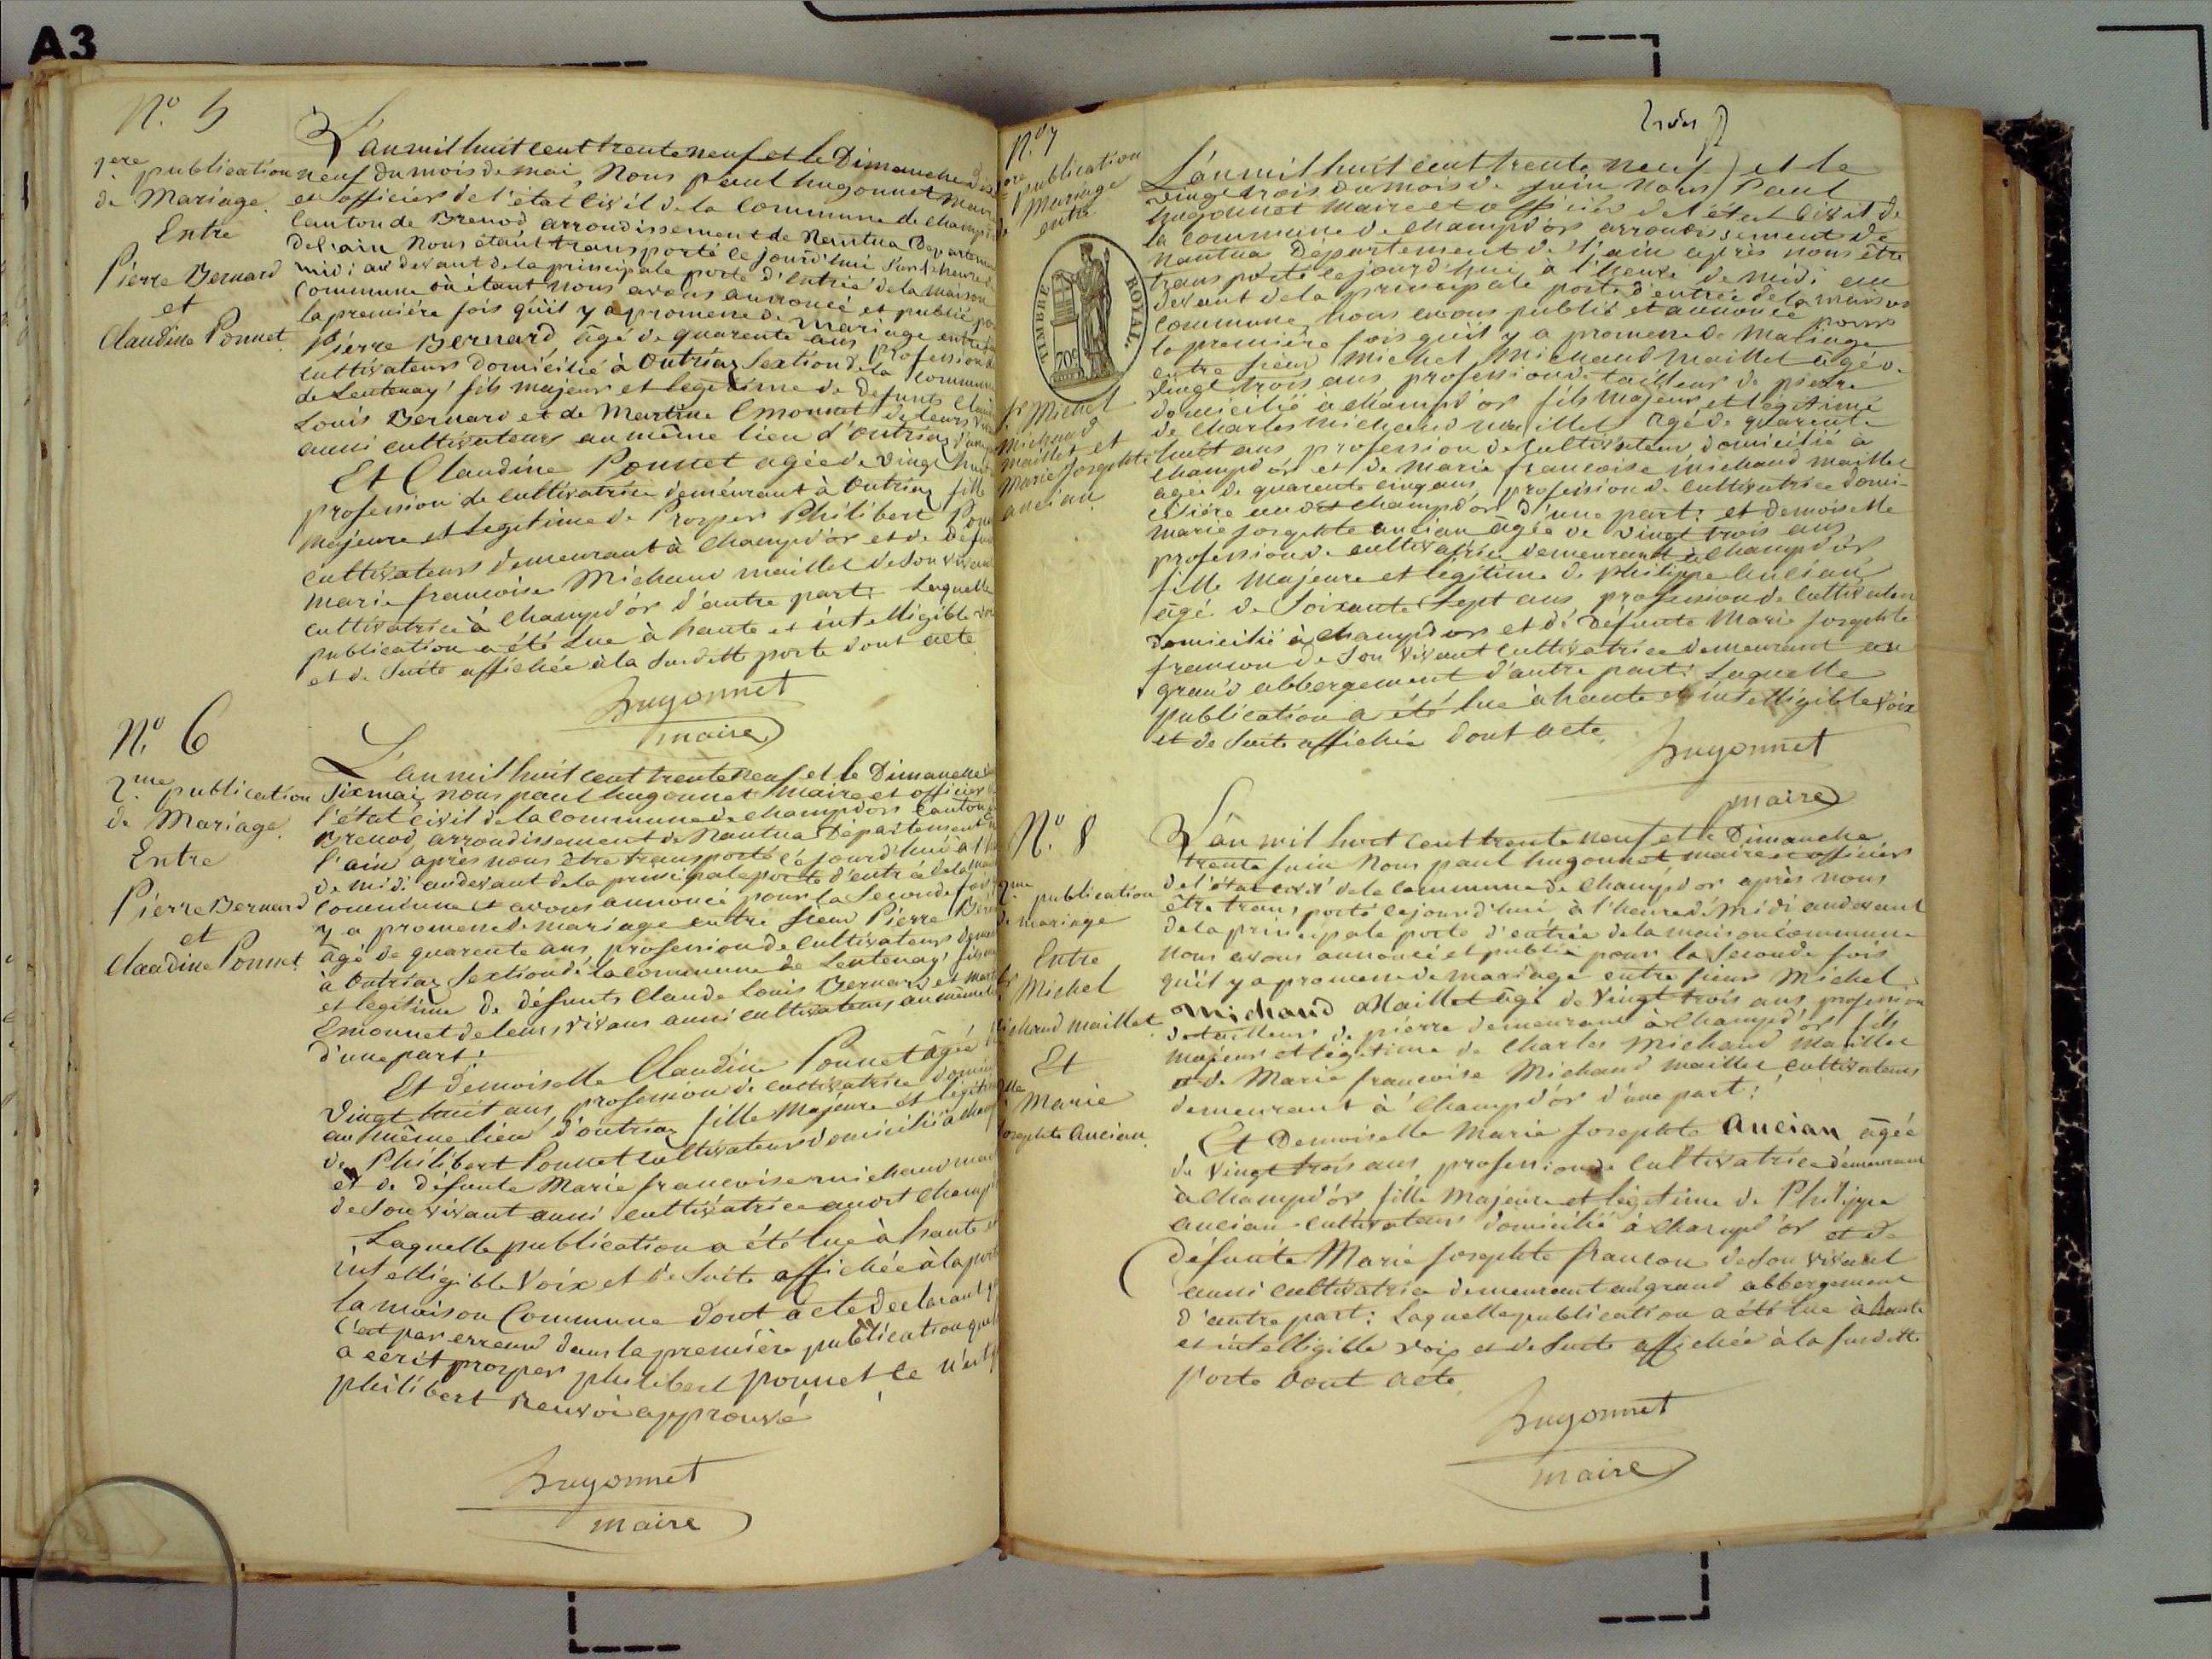 A3
N.° 5
1ere publication
de Mariage.
Entre
Pierre Bernard
et
Claudine Ponnet.
L'an mil huit cent trente neuf et le Dimanche dix
neuf du mois de mai, Nous paul hugonnet maire
et officier de l'état civil de la Commune de Champd'or
Canton de Brenod arrondissement de Nantua Departement
del'ain Nous étant transporté cejourd'hui sur l'heure de
midi au devant de la principale porte d'entrée de la maison
Commune où étant nous avons annoncé et publié pour
la première fois qu'il y a promene de Mariage entre
Pierre Bernard âgé de quarente ans profession de
cultivateur domicilié à Outriaz Sextion de la Commune
de Lentenay, fils majeur et legetime de Defunts Claude
Louis Bernard et de Martine Emonnet de leurs vivans
aussi cultivateurs au même lieu d'Outriaz d'une part
Et Claudine Ponnet agée de Vingt huit
profession de Cultivatrice deméurant à Outriaz fille
majeure et légetime de Prosper Philibert Ponnet
cultivateur demeurant à Champd'or et de Défunte
marie francoise Michaud maillet de son vivant
cultivatrice à Champd'or d'autre part: Laquelle
publication a été lue à haute et intelligible voix
et de Suite affichée à la Susditte porte dont acte.
hugonnet
maire
N.° 6
2.me publication
de Mariage.
Entre
Pierre Bernard
et
Claudine Ponnet.
L'an mil huit cent trente neuf et le Dimanche
Six mai, nous paul hugonnet Maire et officier
l'état civil de la commune de champd'or Canton
Brenod, arrondissement de Nantua Département
l'ain après nous être transporté cejourd'hui à l'
de midi audevant de la principale porte d'entrée de la
commune et avons annoncé pour la Seconde fois
y a promene de mariage entre sieur Pierre
âgé de quarente ans, profession de cultivateur
à Outriaz Sextion de la commune de Lentenay, fils
et legitime de défunts Claude Louis Bernard et
Emonnet de leurs vivans aussi cultivateurs au même
d'une part:
Et Demoiselle Claudine Ponnet âgée
Vingt huit ans, profession de cultivatrice
au même lieu d'outriaz fille Majeure et légitime
de Philibert Ponnet cultivateur domicilié à
et de défunte Marie francoise michaud
de son vivant aussi cultivatrice audt Champd'or
Laquelle publication a été lue à haute et
intelligible Voix et de Suite affichée à la porte
la maison Commune dont acte declarant
c'est par erreur dans la première publication
a ecrit prosper philibert ponnet ce n'est
philibert Renvoi approuvé
hugonnet
maire
N.° 7
publication
Mariage
entre
TIMBRE ROYAL.
Sr Michel
Michaud
maillet et
Marie Josephte
ancian
L'an mil huit cent trente neuf et le
vingt trois du mois de juin nous Paul
hugonnet Maire et officier de l'état Civil de
la commune de champd'or arrondissement de
nantua Département de l'ain après nous être
transporté cejourd'hui, à l'heure de midi au
devant de la principale porte d'entrée de la maison
commune, nous avons publié et annoncé pour
la première fois qu'il y a promene de Mariage
entre sieur Michel Michaud Maillet âgé de
vingt trois ans profession de tailleur de pierre
domicilié à Champd'or fils majeur et légitime
de Charles michaud maillet agé de quarente
huit ans profession de cultivateur domicilié à
Champd'or et de marie francoise michaud maillet
agée de quarente cinq ans, profession de Cultivatrice domi-
ciliée audt Champd'or d'une part: et demoiselle
marie josephte ancian âgée de vingt trois ans
profession de cultivatrice demeurant à Champd'or
fille majeure et légitime de philippe ancian
âgé de Soixante Sept ans profession de cultivateur
domicilié à Champd'or et de Défunte Marie Josephte
francon de Son vivant cultivatrice demeurant au
grand abbergement d'autre part: Laquelle
publication a été lue à haute et intelligible Voix
et de Suite affichée dont acte.
hugonnet
maire
N.° 8
2.me publication
de mariage
Entre
Sr Michel
Michaud maillet
Et
Dlle Marie
Josephte Ancian.
L'an mil huit cent trente neuf et le Dimanche
trente Juin Nous paul hugonnet maire et officier
de l'état civil de la Commune de Champd'or après nous
être transporté cejourd'hui à l'heure de Midi audevant
de la principale porte d'entrée de la maison commune
nous avons annoncé et publié pour la Seconde fois
qu'il y a promene de mariage entre sieur Michel
Michaud Maillet âgé de Vingt trois ans profession
de tailleur de pierre demeurant à Champd'or fils
majeur et légitime de Charles Michaud Maillet
et de Marie francoise Michaud maillet cultivateurs
demeurant à Champd'or d'une part:
Et Demoiselle Marie Josephte Ancian âgée
de Vingt trois ans profession de Cultivatrice demeurant
à Champd'or fille Majeure et légetime de Philippe
ancian cultivateur domicilié à Champd'or et de
défunte Marie Josephte francon de Son vivant
aussi cultivatrice demeurant au grand abbergement
d'autre part: Laquelle publication a été lue à haute
et intelligible voix et de Suite affichée à la susditte
Porte dont acte
hugonnet
maire